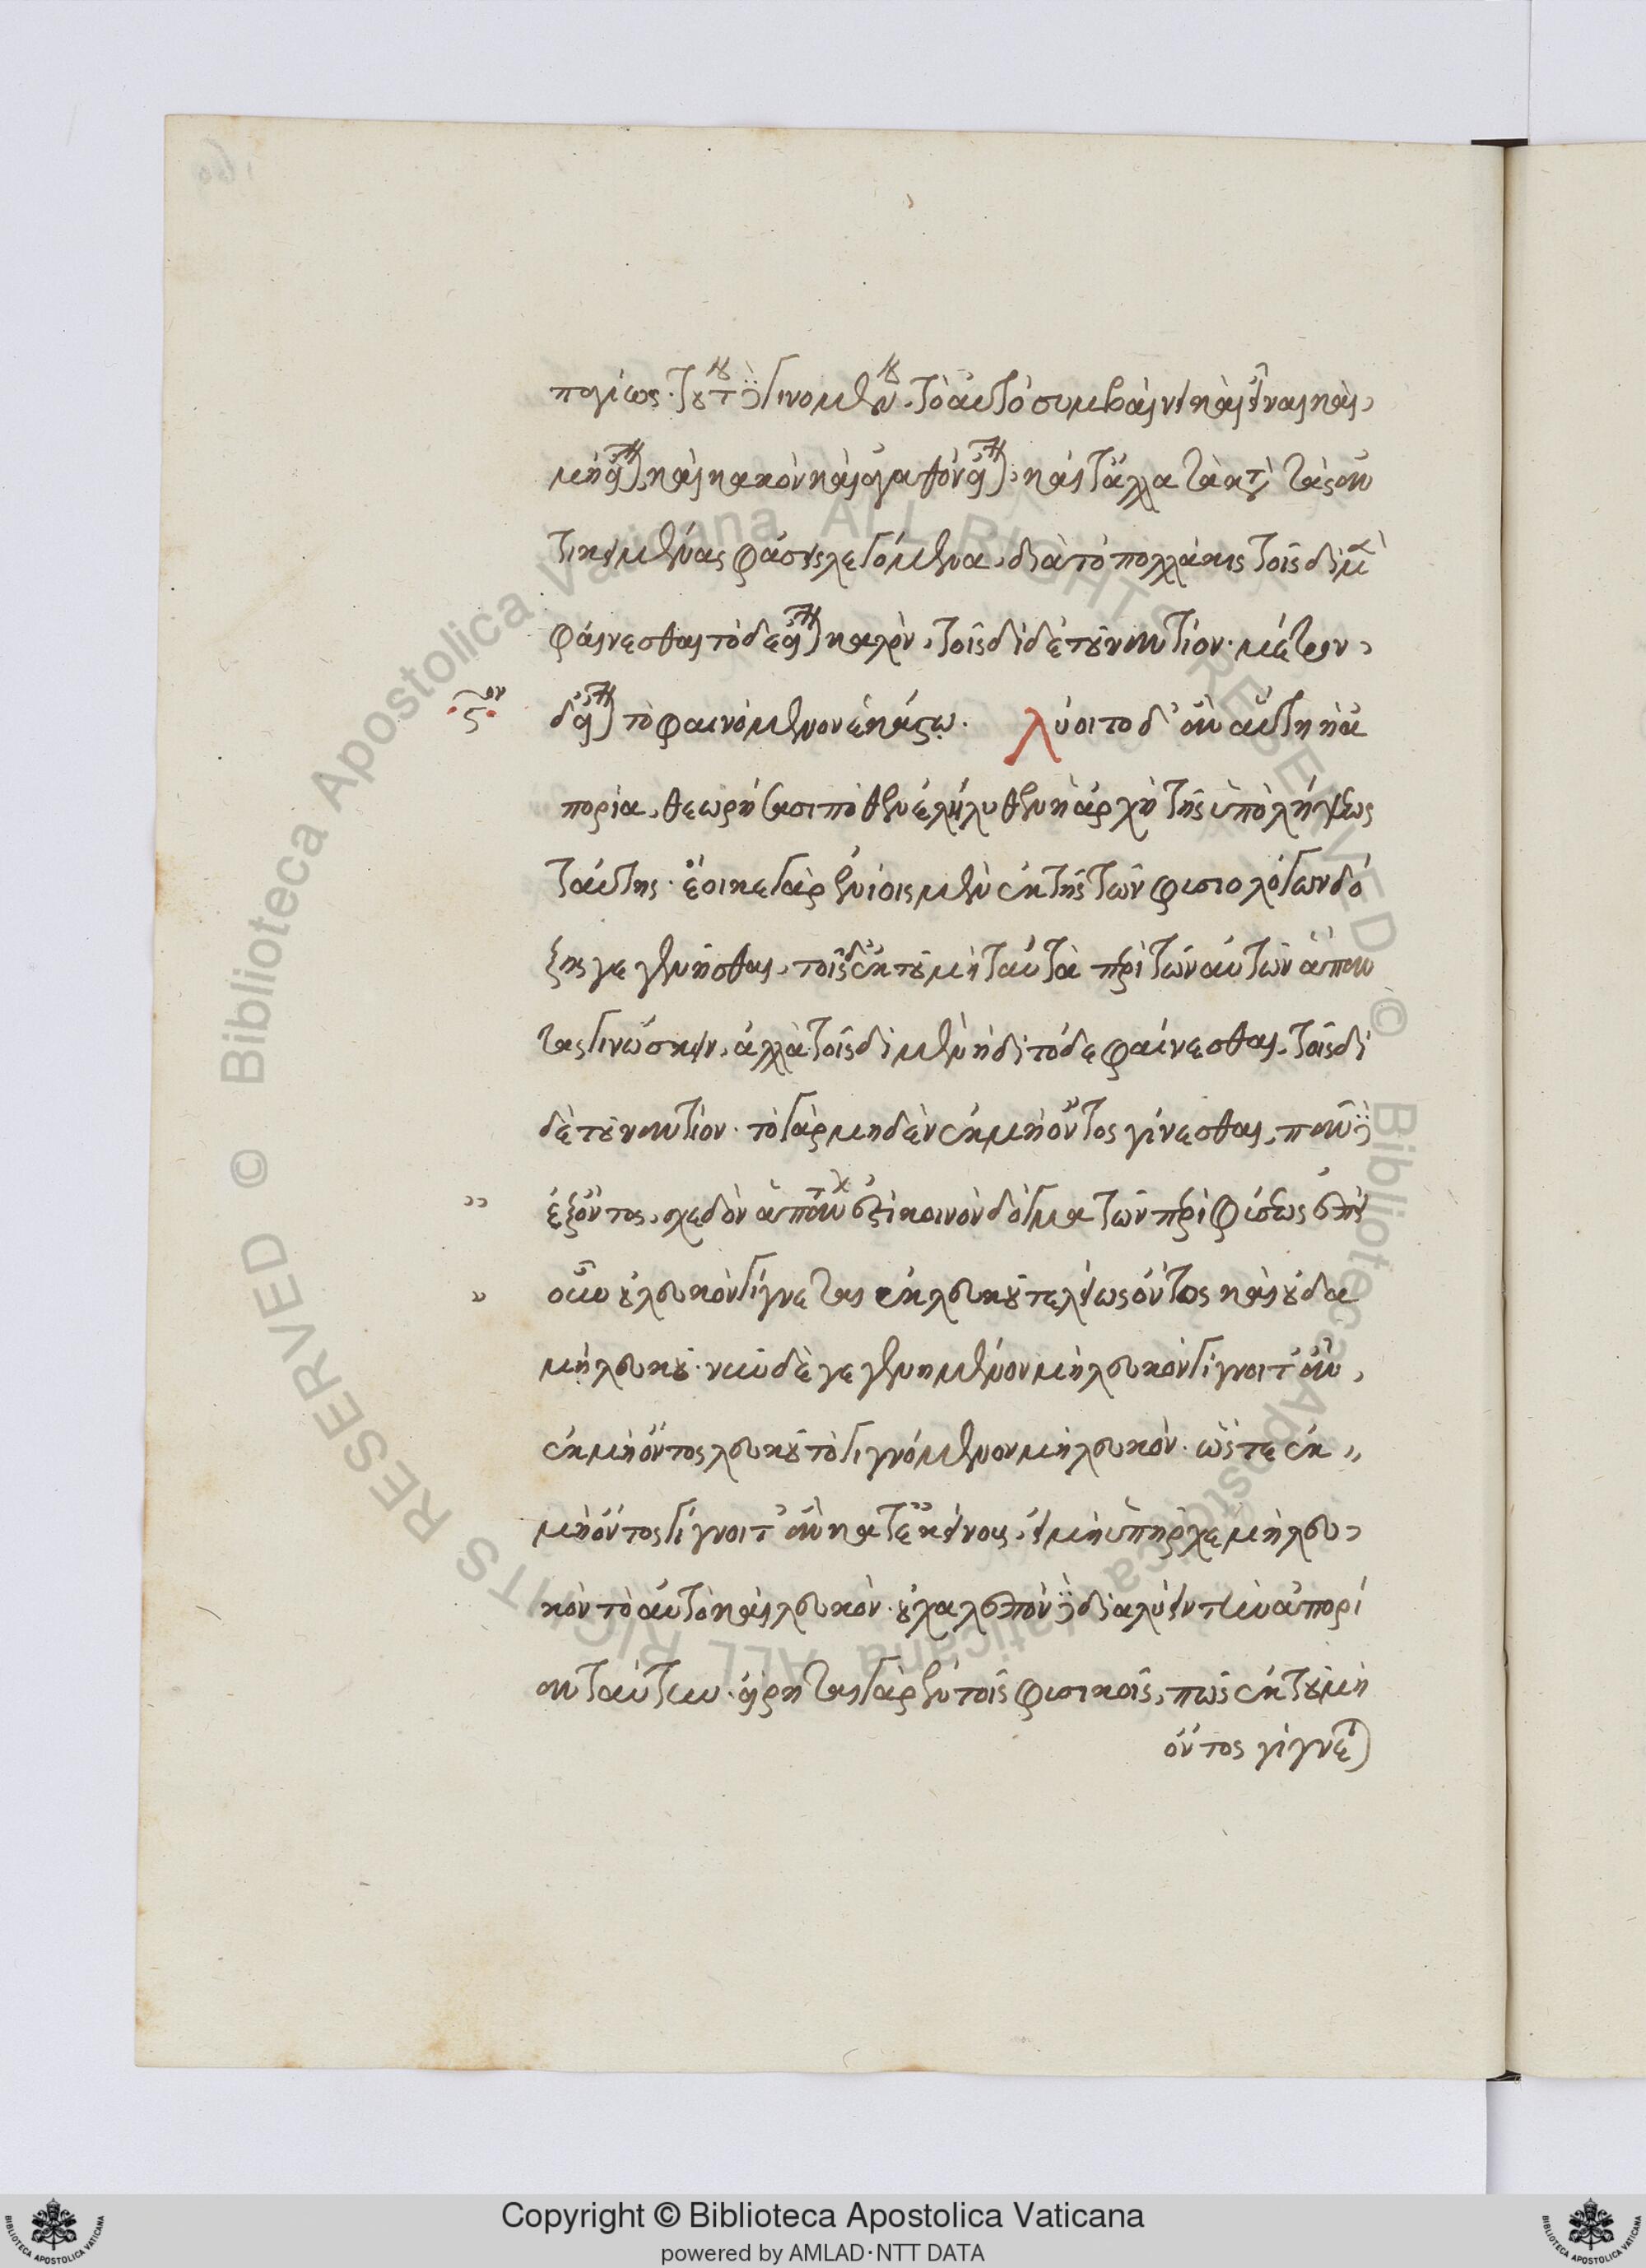 παγίως· τούτου δὲ γινομένου, τὸ αὐτὸ συμβαίνει καὶ εἶναι καὶ
μὴ εἶναι, καὶ κακὸν καὶ ἀγαθὸν εἶναι, καὶ τἄλλα τὰ κατὰ τὰς ἀν
τικειμένας φάσεις λεγόμενα, διὰ τὸ πολλάκις τοισδὶ μὲν
φαίνεσθαι τόδε εἶναι καλὸν, τοισδὶ δὲ τοὐναντίον· μέτρον
δ' εἶναι τὸ φαινόμενον ἑκάστῳ. λύοιτο δ' ἂν αὕτη ἡ ἀ
πορία, θεωρήσασι πόθεν ἐλήλυθεν ἡ ἀρχὴ τῆς ὑπολήψεως
ταύτης· ἔοικε γὰρ ἐνίοις μὲν ἐκ τῆς τῶν φυσιολόγων δό
ξης γεγενῆσθαι, τοῖς δ' ἐκ τοῦ μὴ ταὐτὰ περὶ τῶν αὐτῶν ἅπαν
τας γινώσκειν, ἀλλὰ τοισδὶ μὲν ἡδὶ τόδε φαίνεσθαι, τοισδὶ
δὲ τοὐναντίον· τὸ γὰρ μηδὲν ἐκ μὴ ὄντος γίνεσθαι, πᾶν δὲ
ἐξ ὄντος, σχεδὸν ἁπάντων ἐστὶ κοινὸν δόγμα τῶν περὶ φύσεως· ἐπεὶ
οὖν οὐ λευκὸν γίγνεται ἐκ λευκοῦ τελείως ὄντος καὶ οὐδα
μῆ λευκοῦ· νῦν δὲ γεγενημένον μὴ λευκὸν γίγνοιτ' ἂν
ἐκ μὴ ὄντος λευκοῦ τὸ γιγνόμενον μὴ λευκόν· ὥστε ἐκ
μὴ ὄντος γίγνοιτ' ἂν κατ' ἐκείνους, εἰ μὴ ὑπῆρχε μὴ λευ
κὸν τὸ αὐτὸ καὶ λευκόν· οὐ χαλεπὸν δὲ διαλύειν τὴν ἀπορί
αν ταύτην· εἴρηται γὰρ ἐν τοῖς φυσικοῖς, πῶς ἐκ τοῦ μὴ
ὄντος γίγνεται
Copyright © Biblioteca Apostolica Vaticana
powered by AMLAD·NTT DATA
© Biblioteca Apostolica Vaticana ALL RIGHTS RESERVED
© Biblioteca Apostolica Vaticana ALL RIGHTS RESERVED